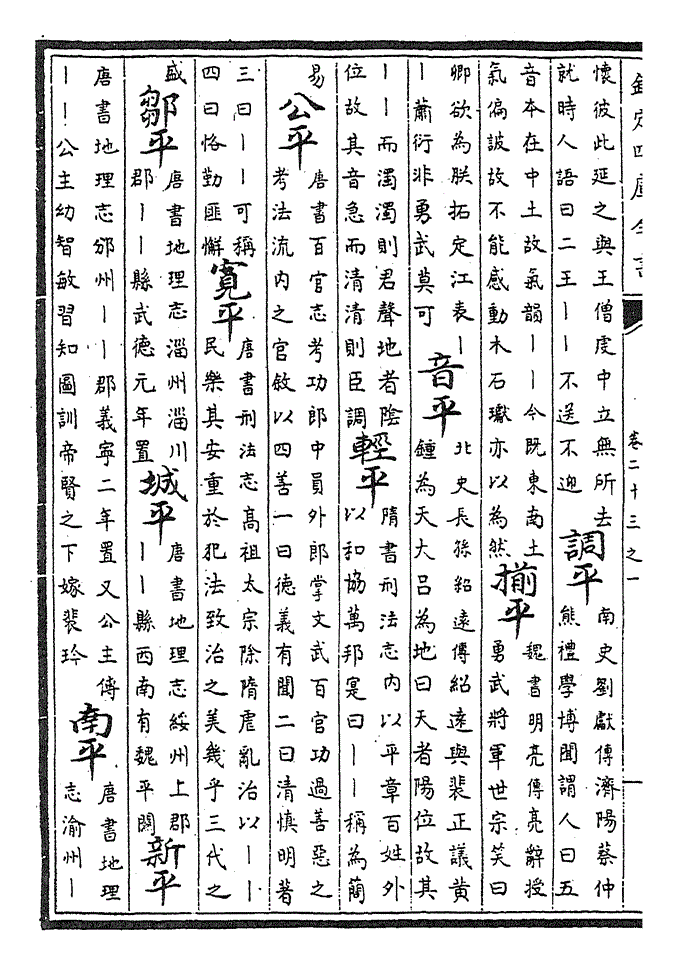 欽定四庫全書 卷二十三之一
懷彼此延之與王僧虔中立無所去
就時人語曰二王丨丨不送不迎
調平
南史劉獻傳濟陽蔡仲
熊禮學博聞謂人曰五
音本在中土故氣韻丨丨今既東南土
氣偏詖故不能感動木石瓛亦以為然
搠平
魏書明亮傳亮辭授
勇武將軍世宗笑曰
卿欲為朕拓定江表丨
丨蕭衍非勇武莫可
音平
北史長孫紹遠傳紹遠與裴正議黄
鍾為天大吕為地曰天者陽位故其
丨丨而濁濁則君聲地者陰
位故其音急而清清則臣調
輕平
隋書刑法志内以平章百姓外
以和協萬邦寔曰丨丨稱為簡
易
公平
唐書百官志考功郎中員外郎掌文武百官功過善惡之
考法流内之官敘以四善一曰德義有聞二曰清慎明著
三曰丨丨可稱
四曰恪勤匪懈
寛平
唐書刑法志髙祖太宗除隋虐亂治以丨丨
民樂其安重於犯法致治之美幾乎三代之
盛
鄒平
唐書地理志淄州淄川
郡丨丨縣武德元年置
城平
唐書地理志綏州上郡
丨丨縣西南有魏平關
新平
唐書地理志邠州丨丨郡義寧二年置又公主傳
丨丨公主幼智敏習知圖訓帝賢之下嫁裴玲
南平
唐書地理
志渝州丨